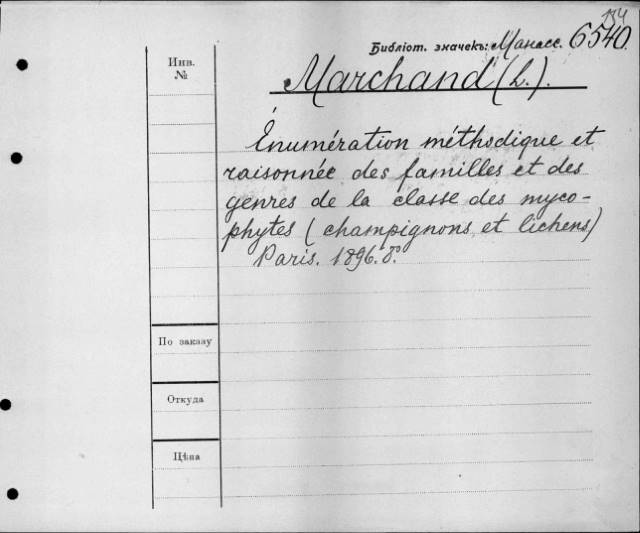 134
Библіот. значекъ: Манасс. 6540.
Инв.
№
Marchand (L.).
Énumération méthodique et
raisonnée des familles et des
genres de la classe des myco-
phytes (champignons et lichens)
Paris. 1896. 8º.
По заказу
Откуда
Цѣна